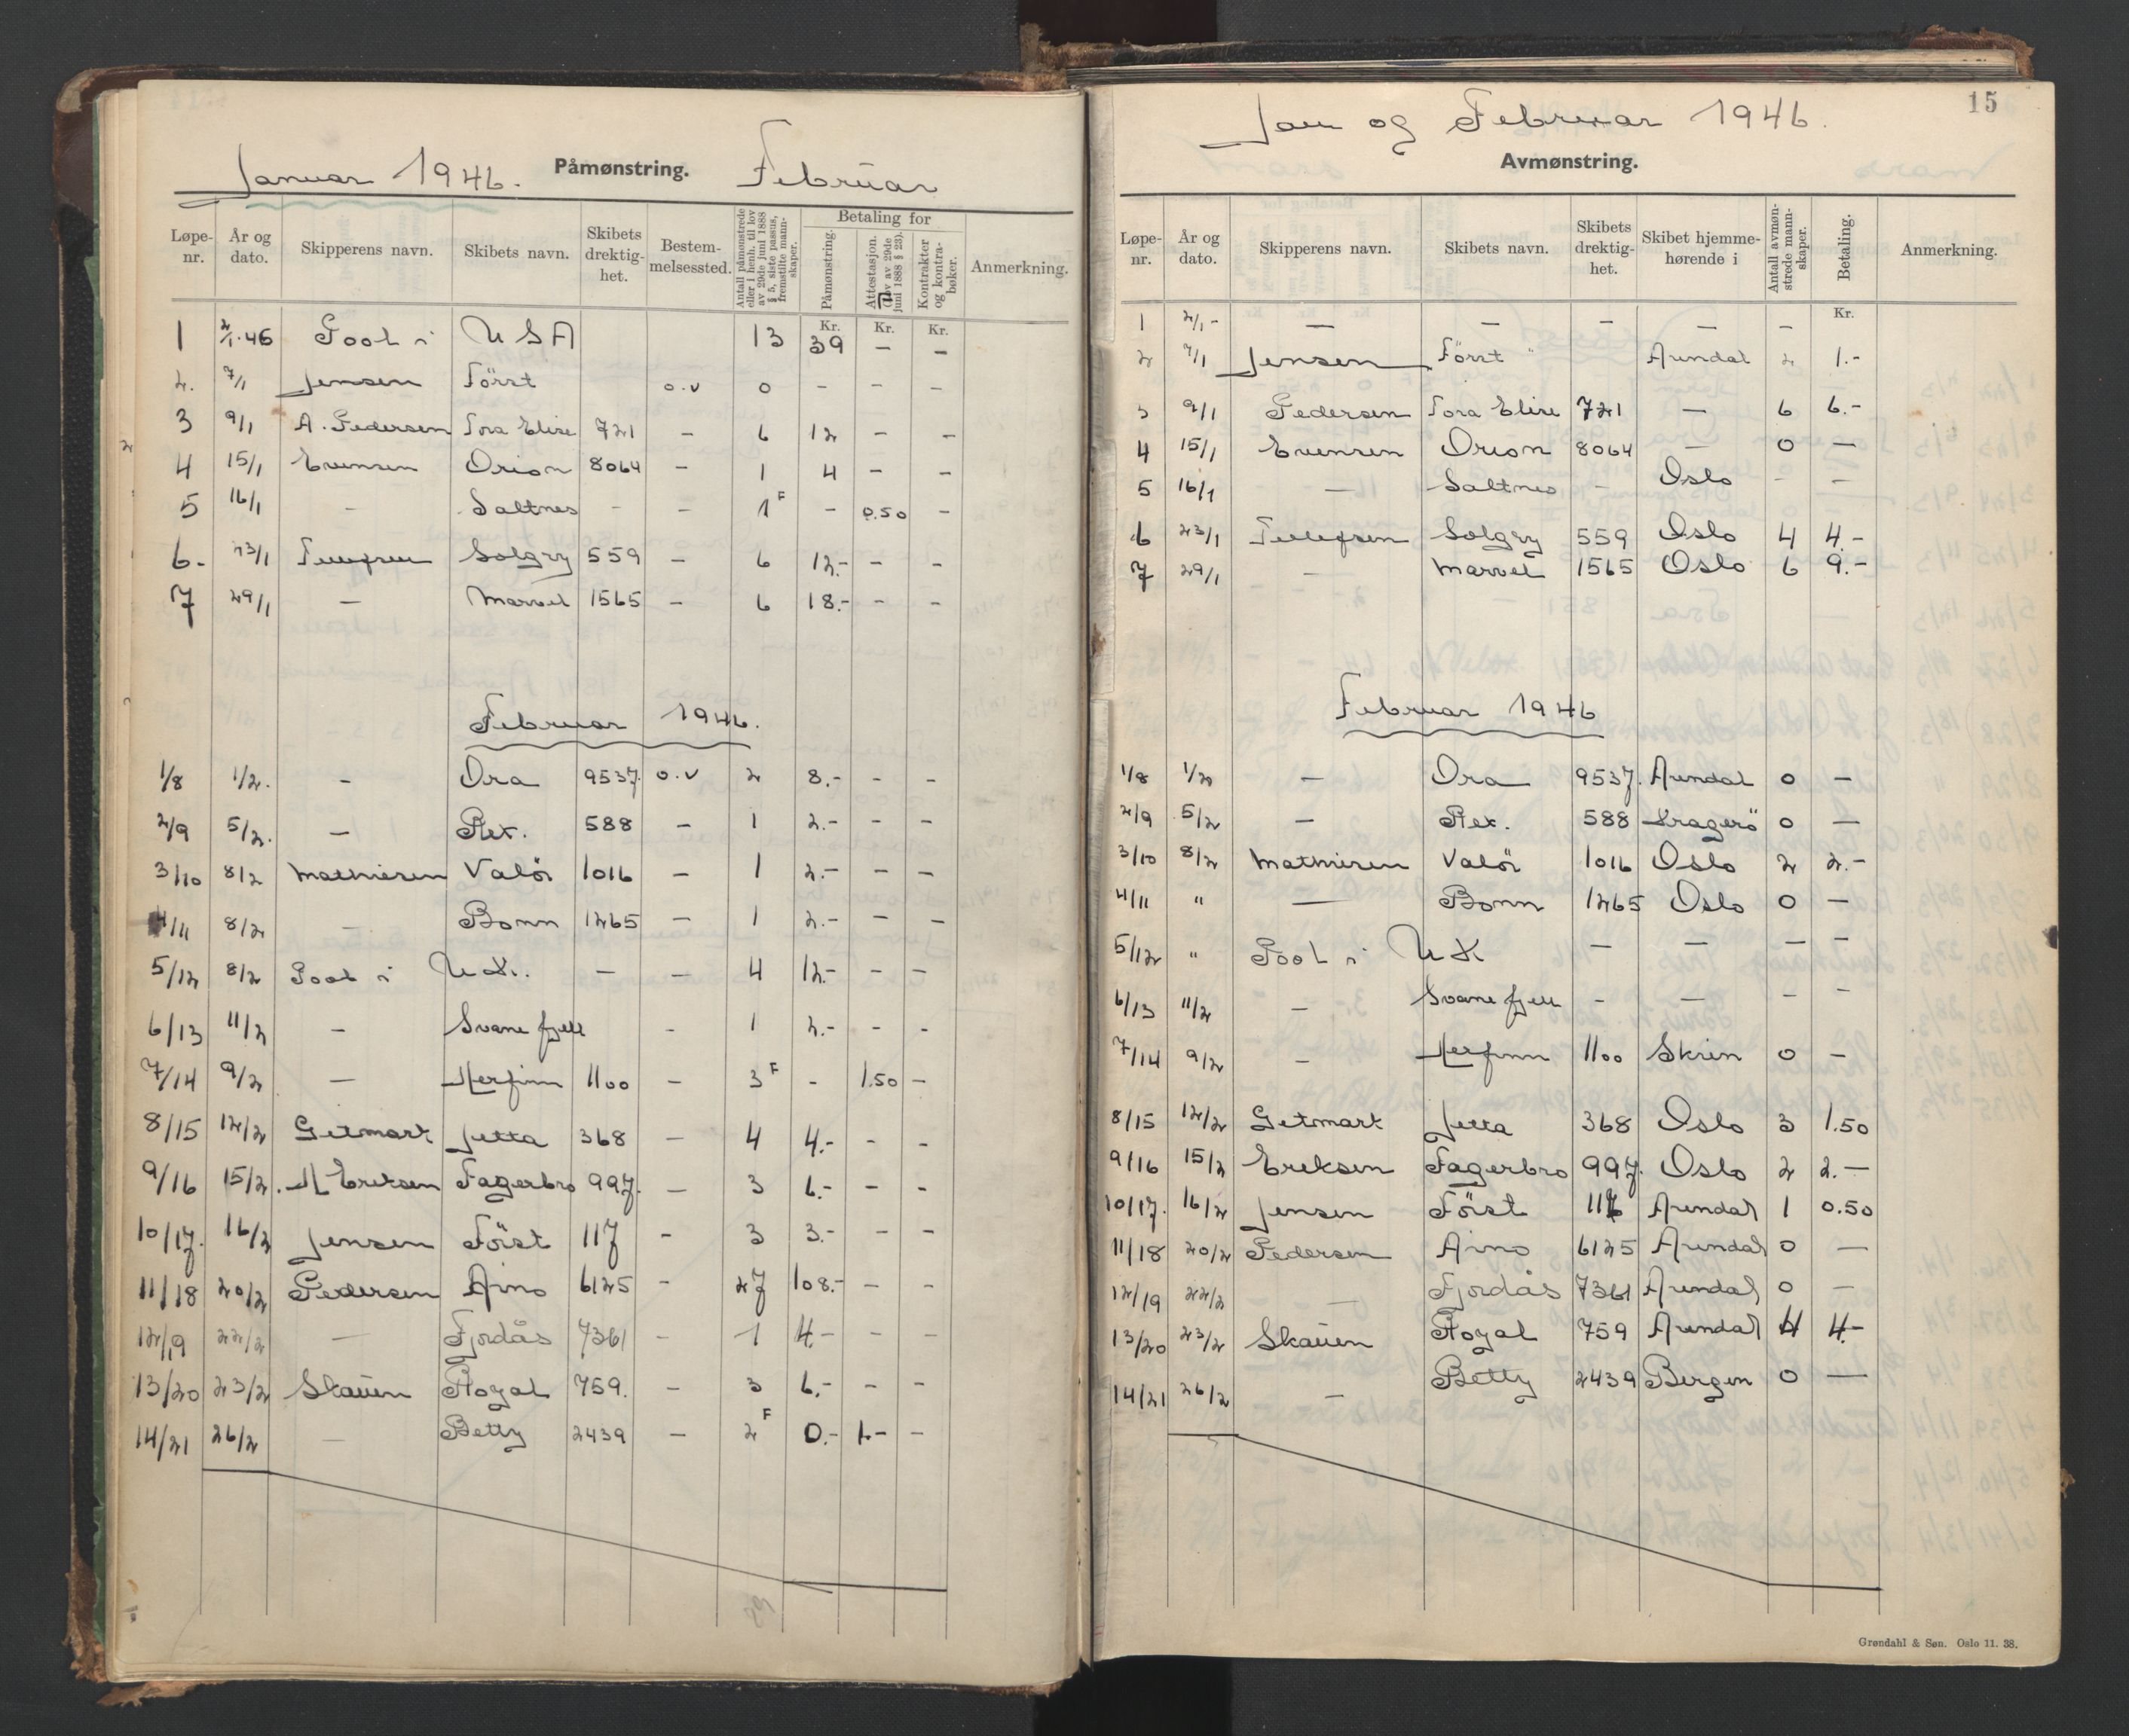 Januar 1946. Påmønstring. Februar
Løpe-nr. År og dato. Skipperens navn. Skibets navn. Skibets drektig-het. Bestem-melsessted. Antall påmønstrede eller i henh. til lov av 29de juni 1888 § 5, siste passus, fremstilte mann-skaper. Betaling for Påmønstring. Attestasjon. (Lov av 29de juni 1888 § 23). Kontrakter og kontra-bøker. Anmerkning.
Kr. Kr. Kr.
1 2/1.46 Pool i U S A 13 39 - -
2. 7/1 Jensen Först o.v 0 - - -
3 9/1 A. Pedersen Tora Elise 721 - 6 12 - -
4 15/1 Evensen Orion 8064 - 1 4 - -
5 16/1 - Saltnes - - 1 F - 0.50 -
6. 23/1 Tellefsen Solgry 559 - 6 12.- - -
7 29/1 - Marvel 1565 - 6 18.- - -
Februar 1946.
1/8 1/2. - Ora 9537. o.v 2 8.- - -
2/9 5/2. - Rex. 588 - 1 2.- - -
3/10 8/2 Mathiesen Valör 1016 - 1 2.- - -
4/11 8/2 - Bonn 1265 - 1 2.- - -
5/12 8/2 Pool i U.K. - - 4 12.- - -
6/13 11/2 - Svanefjell - 1 2.- - -
7/14 9/2 - Herfinn 1100 - 3 F - 1.50 -
8/15 12/2 Getmark Jetta 368 - 4 4.- - -
9/16 15/2. H Eriksen Fagerbro 997. - 3 6.- - -
10/17. 16/2 Jensen Först 117 - 3 3.- - -
11/18 20/2 Pedersen Aino 6125 - 27 108.- - -
12/19 22/2 - Fjordås 7361 - 1 4.- - -
13/20 23/2 Skauen Royal 759. - 3 6.- - -
14/21 26/2 - Betty 2439 - 2 F 0.- 1.- -
15
Jan og Februar 1946.
Avmønstring.
Løpe-nr. År og dato. Skipperens navn. Skibets navn. Skibets drektig-het. Skibet hjemme-hørende i Antall avmøn-strede mann-skaper. Betaling. Anmerkning.
Kr.
1 2/1 - - - - - -
2 7/1 Jensen Först Arendal 2 1.-
3 9/1 Pedersen Tora Elise 721 - 6 6.-
4 15/1 Evensen Orion 8064 - 0 -
5 16/1 - Saltnes - Oslo - -
6 23/1 Tellefsen Solgry 559 Oslo 4 4.-
7 29/1 - Marvel 1565 Oslo 6 9.-
Februar 1946
1/8 1/2 - Ora 9537. Arendal 0 -
2/9 5/2 - Rex. 588 Kragerö 0 -
3/10 8/2 Mathiesen Valör 1016 Oslo 2 2.-
4/11 " - Bonn 1265 Oslo 0 -
5/12 " Pool i U K - - - -
6/13 11/2 - Svanefjell - - - -
7/14 9/2 - Herfinn 1100 Skien 0 -
8/15 12/2 Getmark Jetta 368 Oslo 3 1.50
9/16 15/2 Eriksen Fagerbro 997. Oslo 2 2.-
10/17. 16/2 Jensen Först 117 Arendal 1 0.50
11/18 20/2 Pedersen Aino 6125 Arendal 0 -
12/19 22/2 - Fjordås 7361 Arendal 0 -
13/20 23/2 Skauen Royal 759 Arendal 4 4.-
14/21 26/2 - Betty 2439 Bergen 0 -
Grøndahl & Søn. Oslo 11. 38.